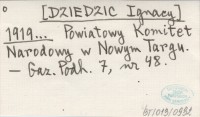 [DZIEDZIC Ignacy]
1919... Powiatowy Komitet
Narodowy w Nowym Targu.
— Gaz. Podh. 7, nr 48.